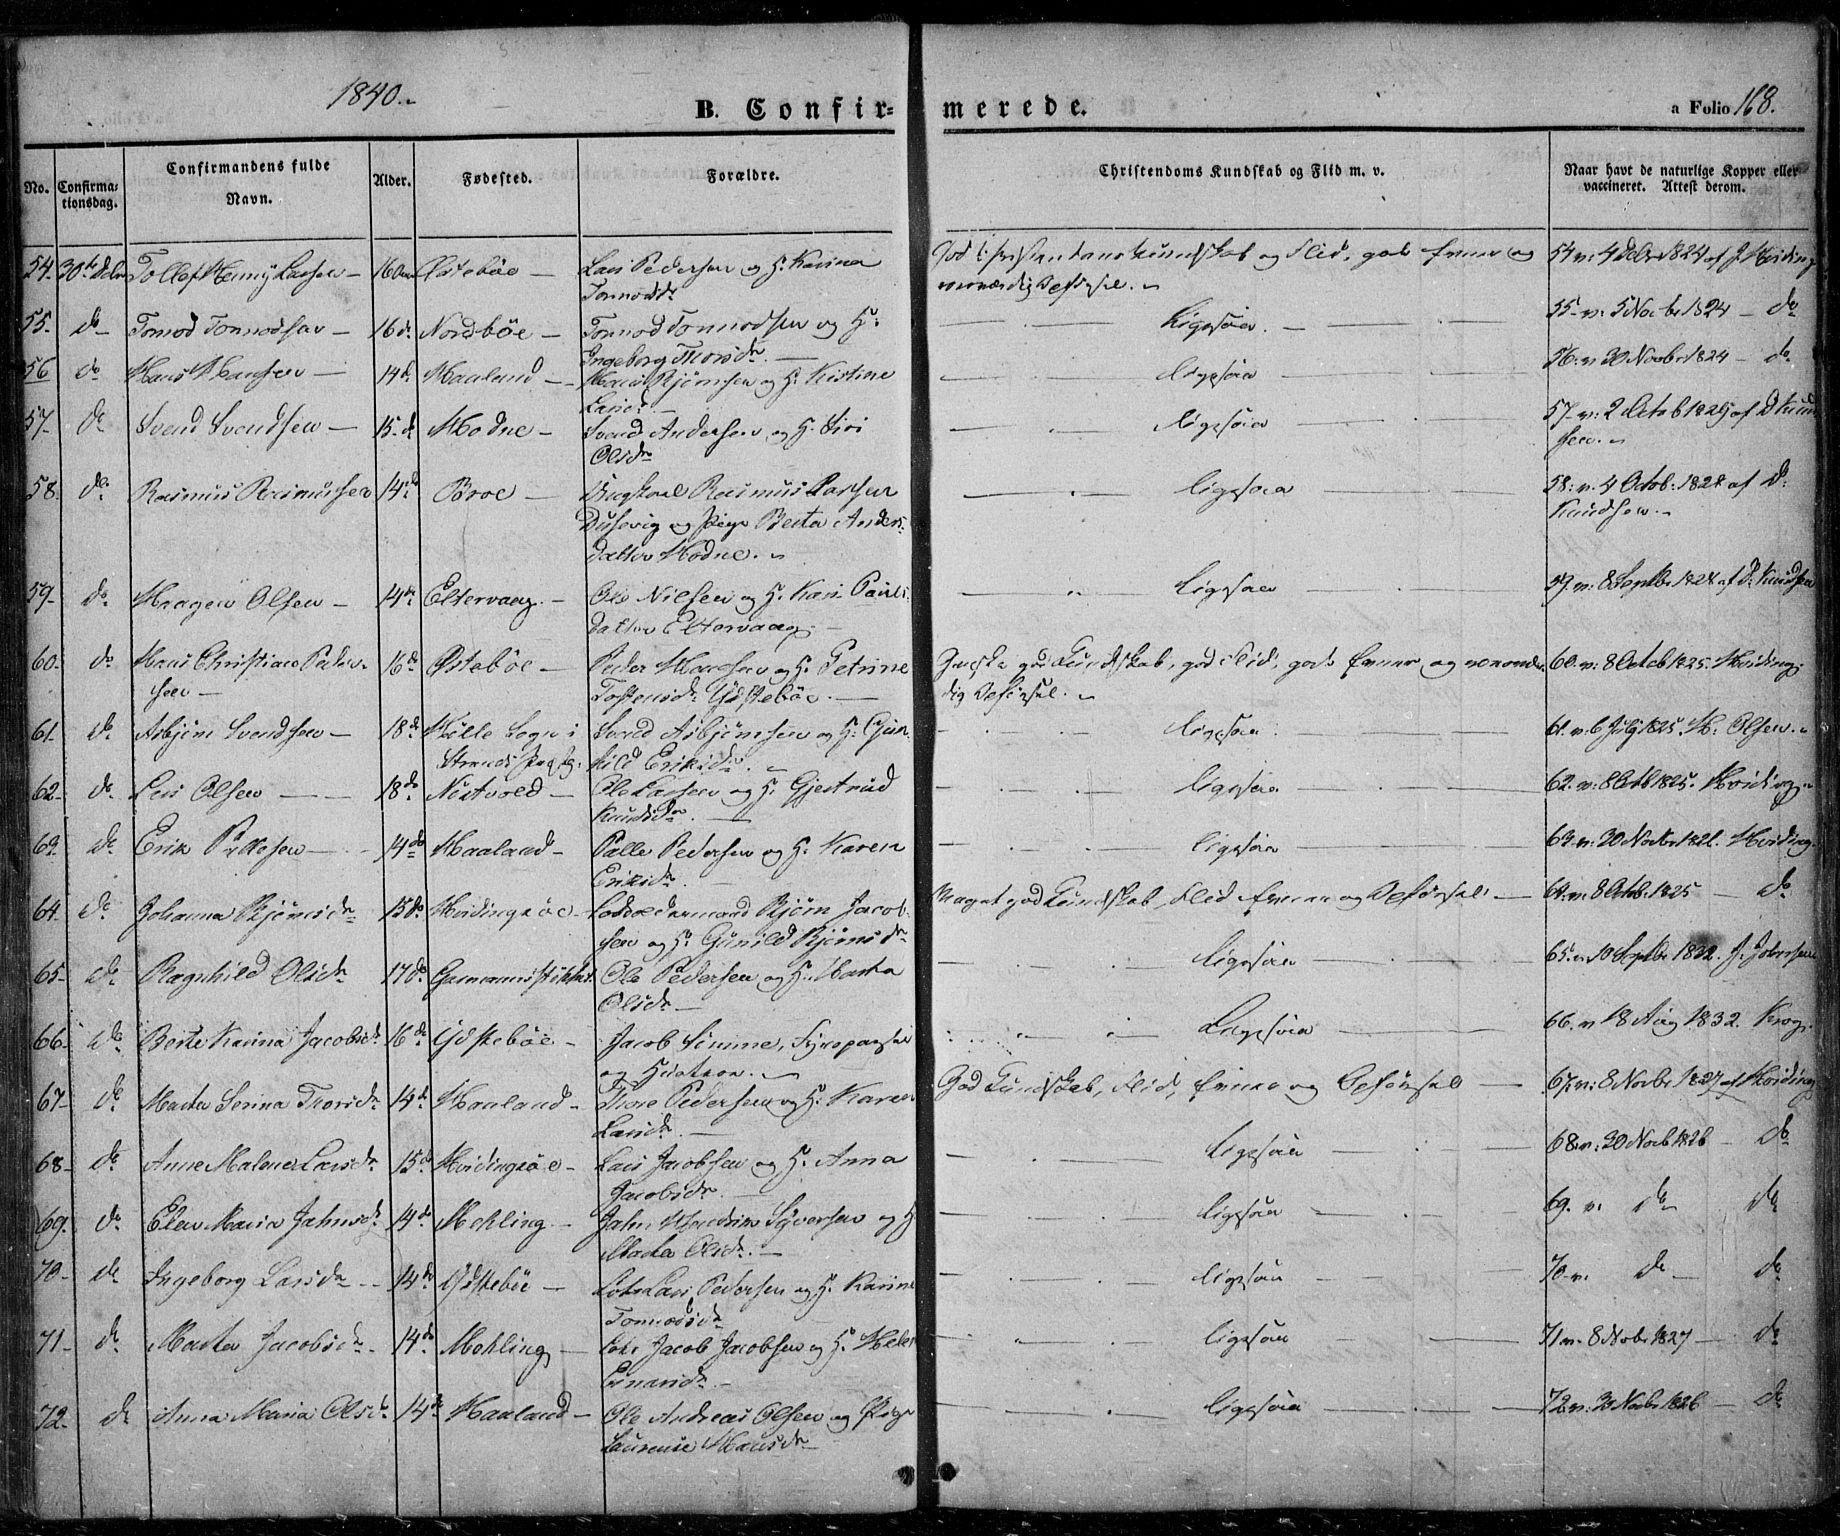 1840.
B. Confir-
merede.
a Folio 168.
No.
Confirma-
tionsdag.
Confirmandens fulde
Navn.
Alder.
Fødested.
Forældre.
Christendoms Kundskab og Flid m. v.
Naar havt de naturlige Kopper eller
vaccineret. Attest derom.
54. Tollef Larsen 16 Østebøe Lars Pedersen og H. Karina
Tonnesdr
God Christendomskundskab og Flid, gode Evner og
54 v. 4 1824 af Hviding
55. do Tonnod Tonnodsen 16 do Nordbøe Tonnod Tonnodsen og H.
Ingeborg Thorsdr
Ligesaa
55. v. 5 Novbr 1824 do
56 do Hans Hansen 14 do Haaland Hans Bjørnsen og H. Kistine
Larsdr
ligesaa
56. v. 30 Novbr 1824 do
57. do Svend Svendsen 15 do Hodne Svend Andersen og H. Siri
Olsdr
ligesaa
57. v. 2 Octob 1825 af D Knud
sen.
58. do Rasmus Rasmussen 14 do Broe Rasmus Larsen
Dusevig og Pige Berta Anders-
datter Hodne.
ligesaa
58. v. 4 Octob. 1828 af D.
Knudsen.
59. do Olsen 14 do Eltervaag Ole Nilsen og H. Kari Pauls-
datter Eltervaag
ligesaa
59. v. 8 Septbr 1828 af D. Knudsen
60. do Hans Christian Peder-
sen 16 do Østebøe Peder Hansen og H. Petrine
Tostensdr Ydstebøe.
Ganske god Kundskab, god Flid, gode Evner og
60. v. 8 Octob 1825 Hviding
61. do Asbjørn Svendsen 18 do Sogn i
Svend Asbjørnsen og H. Gun-
hild Eriksdr
ligesaa
61. v. 6 July 1825 H. Olsen.
62. do Lars Olsen 18 do Nistvold Ole Larsen og H. Gjertrud
Knudsdr
ligesaa
62. v. 8 Octb 1825. Hviding
63. do Erik Pallesen 14 do Haaland Palle Pedersen og H. Karen
Eriksdr
ligesaa
63. v. 30 Novbr 1826. Hviding
64. do Johanna Bjørnsdr 15 do Hvidingsøe Bjørn Jacob-
sen og H. Gunild Bjørnsdr
Meget god Kundskab, Flid Evner og Opførsel
64. v. 8 Octb. 1825 do
65. do Ragnhild Olsdr 17 do Ole Pedersen og H. Marta
Olsdr
ligesaa
65. v. 10 Septbr 1832. J. Johnsen
66. do Berte Karina Jacobsdr 16 do Ydstebøe Jacob Simme,
og Hustroe.
Ligesaa
66. v. 18 Aug 1832. Krog.
67. do Marta Serina Thorsdr 14 do Haaland Thore Pedersen og H. Karen
Larsdr
God Kundskab, Flid, Evner og Opførsel
67. v. 8 Novbr 1827 af Hviding
68. do Anne Malene Larsdr 15 do Hvidingsøe Lars Jacobsen og H. Anna
Jacobsdr
ligesaa
68. v. 30 Novb 1826 do
69. do Elen Maria Jahnsdr 14 do Mehling Jahn Sÿversen og H
Marta Olsdr
ligesaa
69. v. do do
70. do Ingeborg Larsdr 14 do Ydstebøe Lars Pedersen og H. Karine
Tonnodsdr
ligesaa
70. v. do do
71. do Marta Jacobsdr 14 do Mehling Jacob Jacobsen og H.
Einarsdr
ligesaa
71. v. 8 Novb. 1827 do
72. do Anna Maria Olsdr 14 do Haaland Ole Andreas Olsen og Pige
Laurense Hansdr
ligesaa
72. v. 30 Novbr 1826 do